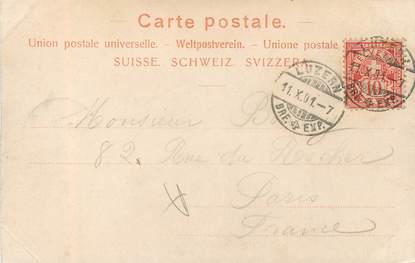 Carte postale.
Union postale universelle. – Weltpostverein. – Unione postale
SUISSE. SCHWEIZ. SVIZZERA
LUZERN
11.X.01.-7
BRF. EXP.
10
Monsieur
82. Rue du
Paris
France